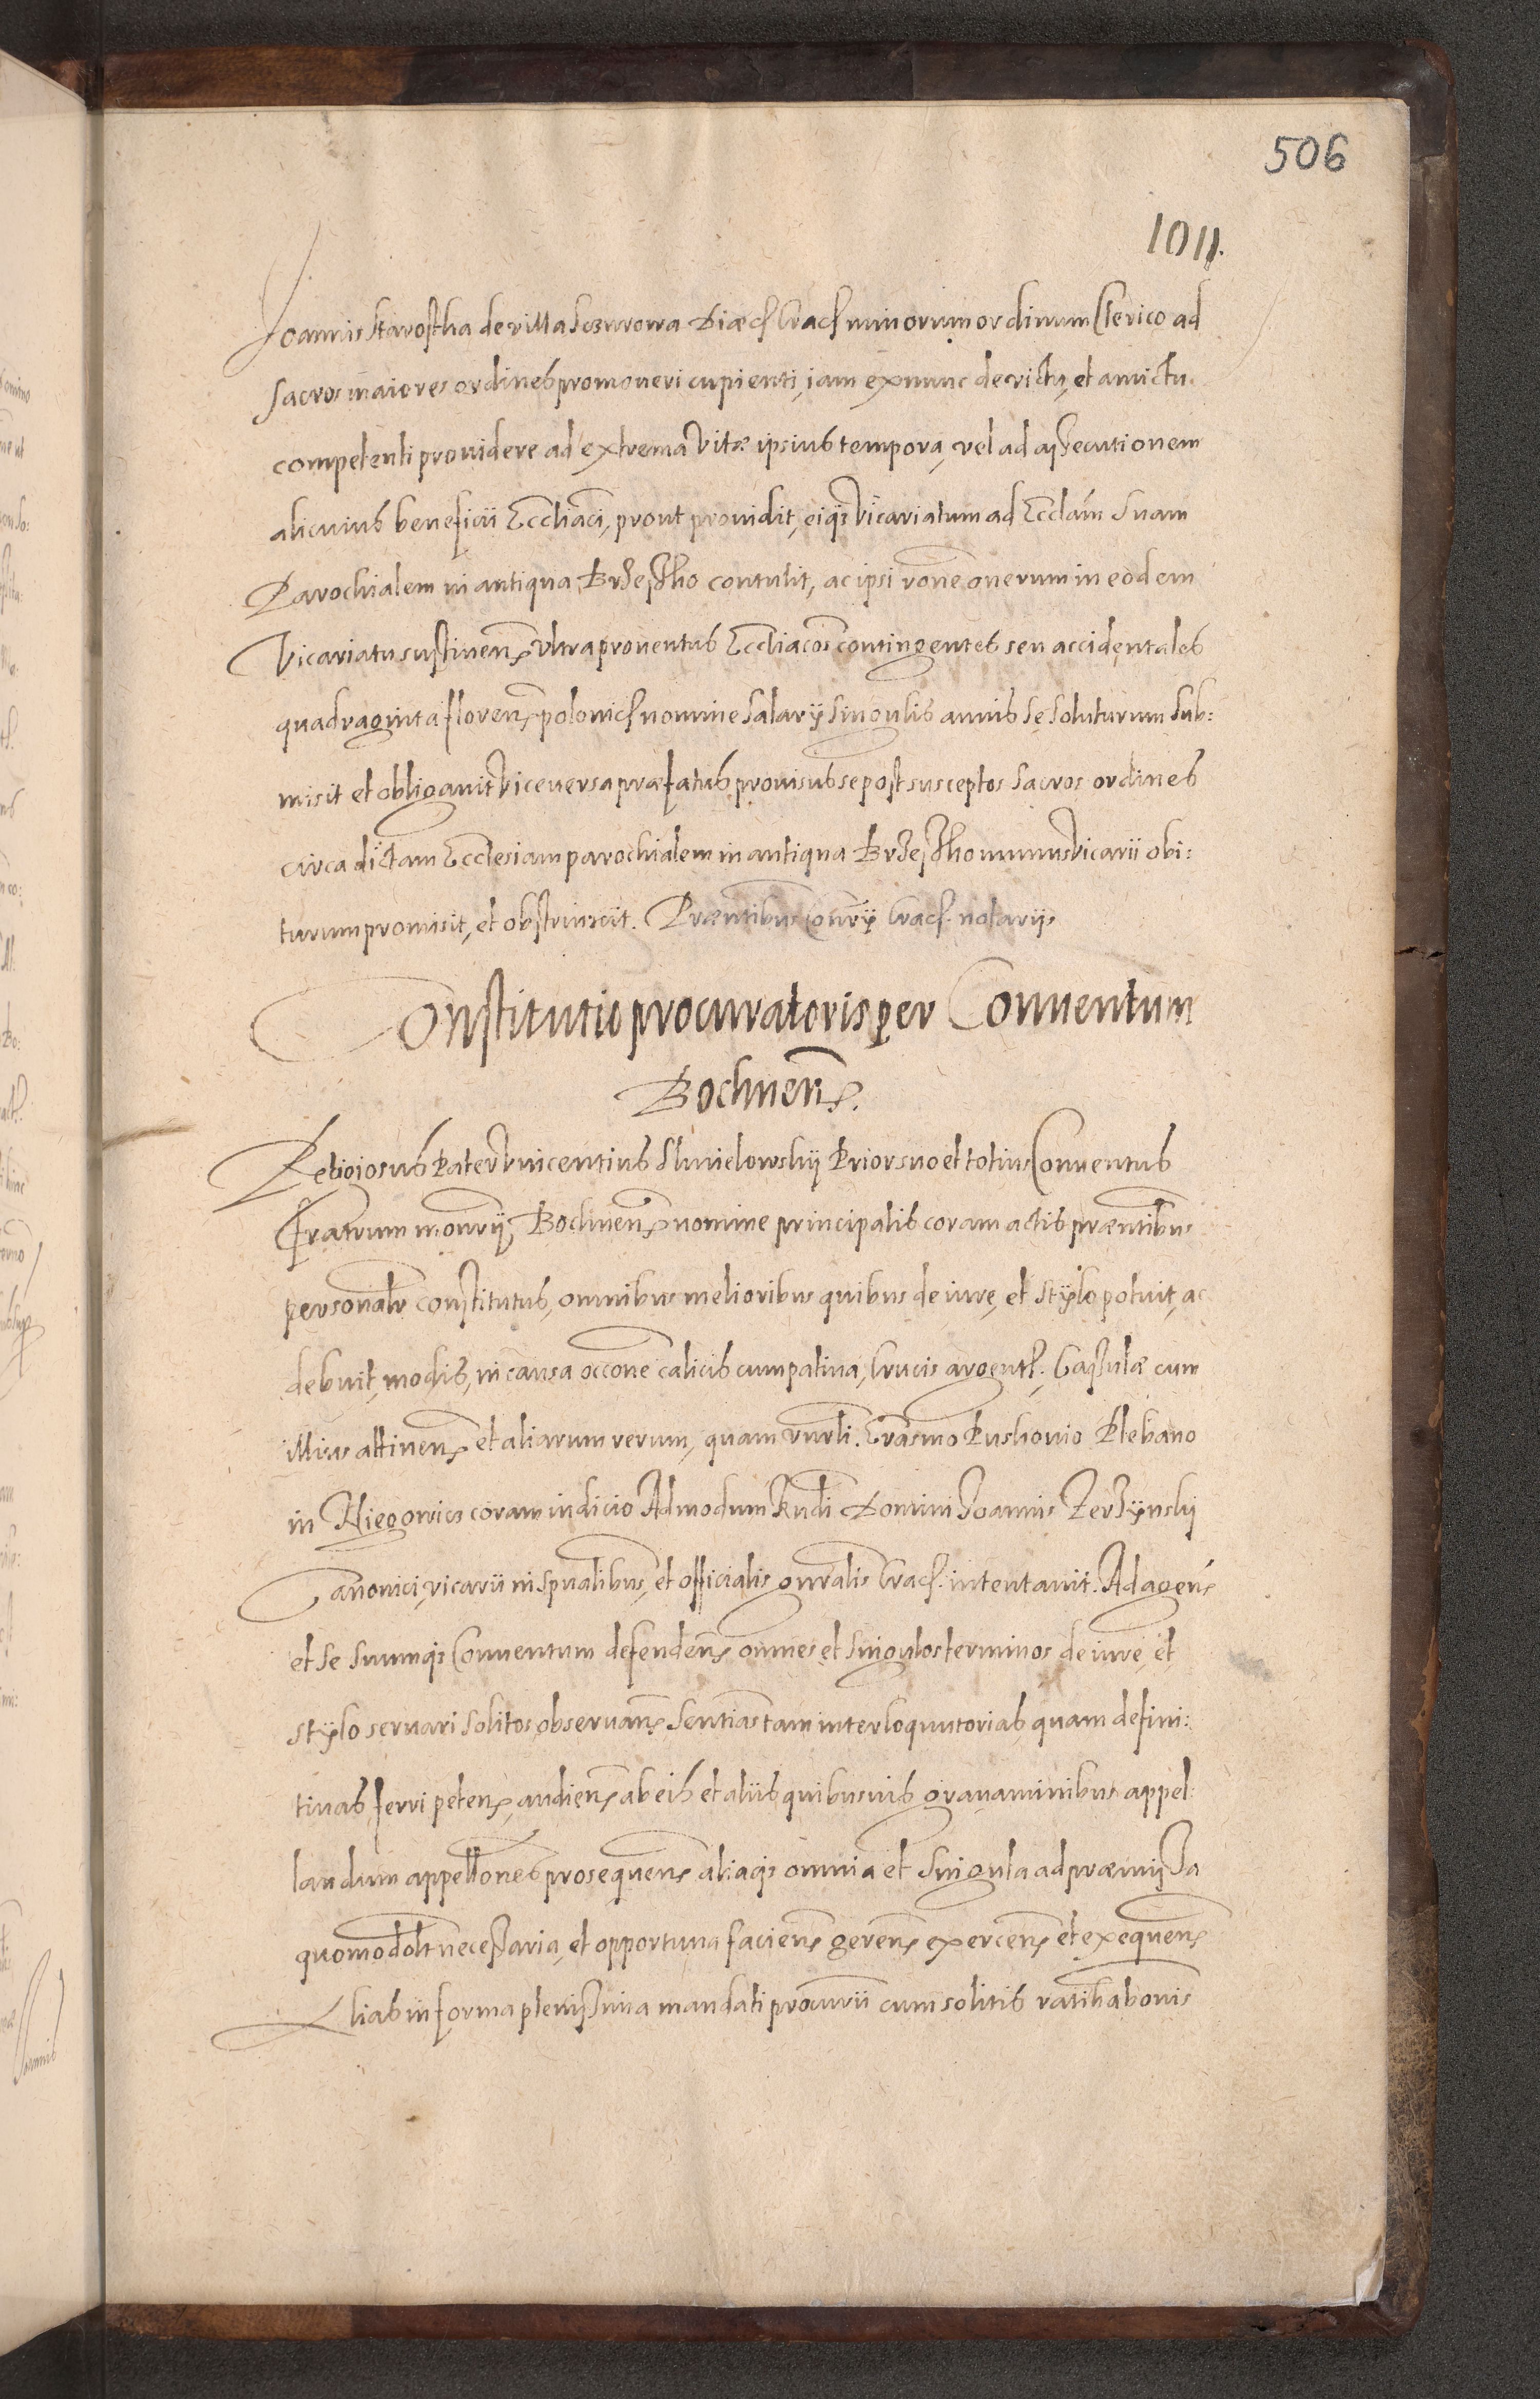 506
1011.
Joannis Starostha de villa Sczurowa Diœc. Crac. minorum ordinum Clerico ad
sacros maiores ordines promoveri cupienti, iam ex nunc de victu, et amictu
competenti providere ad extrema Vitæ ipsius tempora, vel ad assecutionem
alicuius beneficii Eccliaci, prout providit, eiq; Vicariatum ad Ecclam suam
Parochialem in antiqua Brzesstho contulit, ac ipsi rone onerum in eodem
Vicariatu sustinen. Ultra proventus Eccliacos contingentes seu accidentales
quadraginta floren. polonic. nomine Salarÿ singulis annis se soluturum sub:
misit et obligavit Vice versa præfatus provisus se post susceptos sacros ordines
circa dictam Ecclesiam parochialem in antiqua Brzesstho munus Vicarii obi:
turum promisit, et obstrinxit. Præntibus Conrÿ Crac. notarÿs
Constitutio procuratoris per Conventum
Bochnen.
Religiosus Pater Vincentius Prior suo et totius Conventus
Fratrum monrÿ Bochnen. nomine principalis coram actis præntibus
personalr constitutus, omnibus melioribus quibus de iure, et stÿlo potuit, ac
debuit, modis, in causa occone calicis cum patina, Crucis argent. Cassulæ cum
illius attinen. et aliarum rerum, quam Vnrli. Erasmo Plebano
in Niegowicz coram iudicio Admodum Rndi Domini Joannis Zerzÿnskÿ
Canonici, vicarii in spualibus, et officialis gnralis Crac. intentavit. Ad agen.
et se suumq; Conventum defenden. omnes et singulos terminos de iure, et
stÿlo servari solitos, observan. Sentias tam interloquutorias quam defini:
tivas ferri peten. audien. ab eis et aliis quibusvis gravaminibus appel:
landum appellones prosequen. aliaq; omnia et singula ad præmissa
quomodolt necessaria, et opportuna facien. geren. exercen. et exequen.
Alias in forma plenissima mandati procurii cum solitis ratihabonis